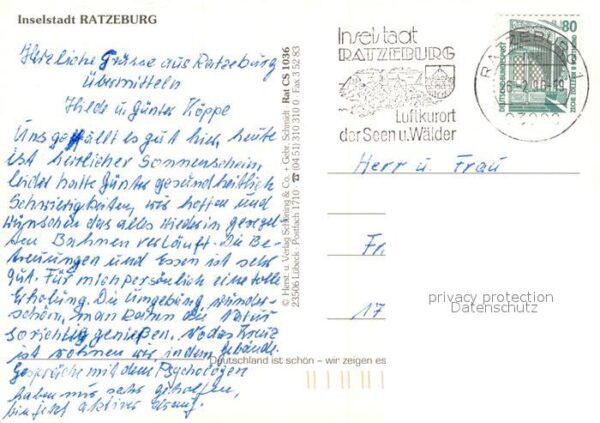 Inselstadt RATZEBURG
Herzliche Grüsse aus Ratzeburg
übermitteln
Hilde u. Günter Köppe
Uns gefällt es gut hier, heute
ist herrlicher Sonnenschein,
leider hatte Günter gesundheitlich
Schwierigkeiten, wir hoffen und
wünschen das alles wieder in geregel-
ten Bahnen verläuft. Die Be-
treuungen und Essen ist sehr
gut. Für mich persönlich eine tolle
Erholung. Die Umgebung wunder-
schön, man kann die Natur
so richtig genießen. Wo das Kreuz
ist wohnen wir, in dem Gebäude.
Gespräche mit dem Psychologen
haben mir sehr geholfen,
bin jetzt aktiver
© Herst. u. Verlag Schöning & Co. + Gebr. Schmidt Rat CS 1036
23506 Lübeck · Postfach 1710 · ☎ (04 51) 310 310 0 · Fax 3 52 83
Inselstadt
RATZEBURG
Luftkurort
der Seen u. Wälder
RATZEBURG 1
80
DEUTSCHE BUNDESPOST
Herr u. Frau
Fr.
17
privacy protection
Datenschutz
Deutschland ist schön – wir zeigen es